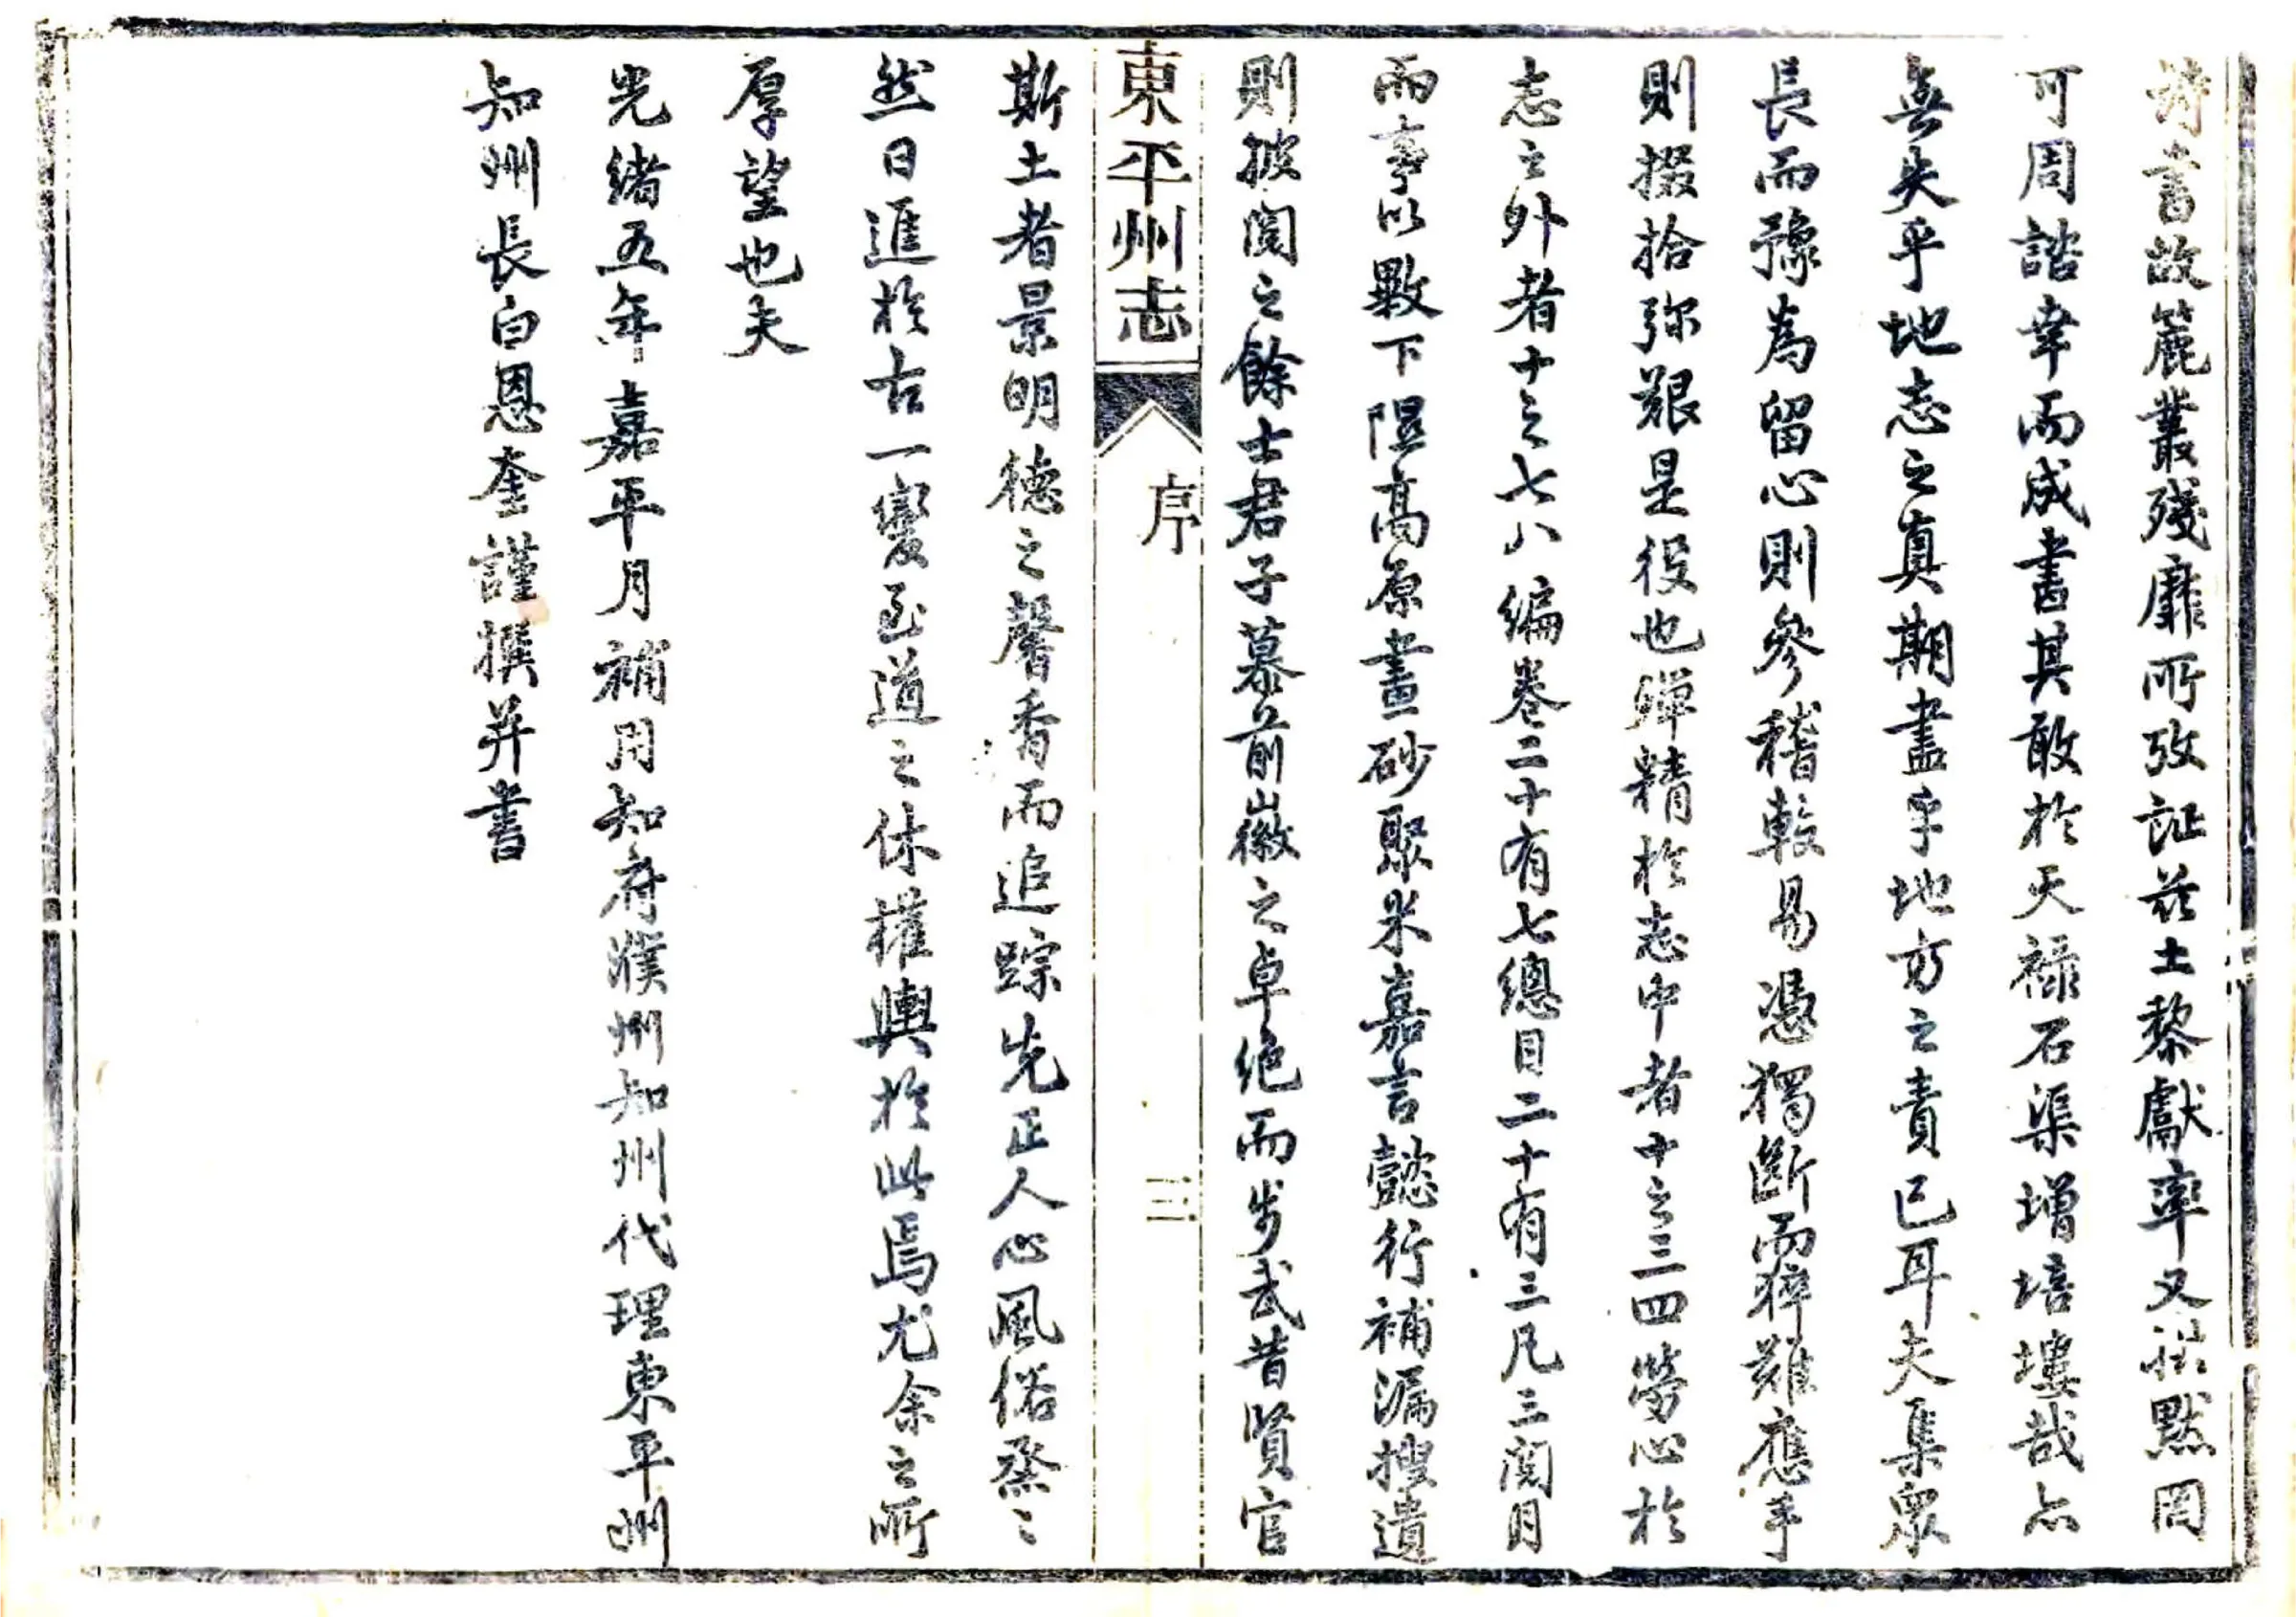 詩書故簏叢殘靡所攷証茲土黎獻率又㳟默罔
可周諮幸而成書其敢於天祿石渠增培塿哉亦
無失乎地志之真期盡乎地方之責已耳夫集眾
長而豫為留心則參稽較易憑獨斷而猝難應手
則掇拾弥艱是役也殫精於志中者十之三四勞心於
志之外者十之七八編卷二十有七總目二十有三凡三閱月
而事以歝下隰高原畫砂聚米嘉言懿行補漏搜遺
則披閱之餘士君子慕前徽之卓絕而步武昔賢官
東平州志 序 三
斯土者景明德之馨香而追踪先正人心風俗烝〻
然日進於古一變至道之休權輿於此焉尤余之所
厚望也夫
光緒五年嘉平月補用知府濮州知州代理東平州
知州長白恩奎謹撰并書